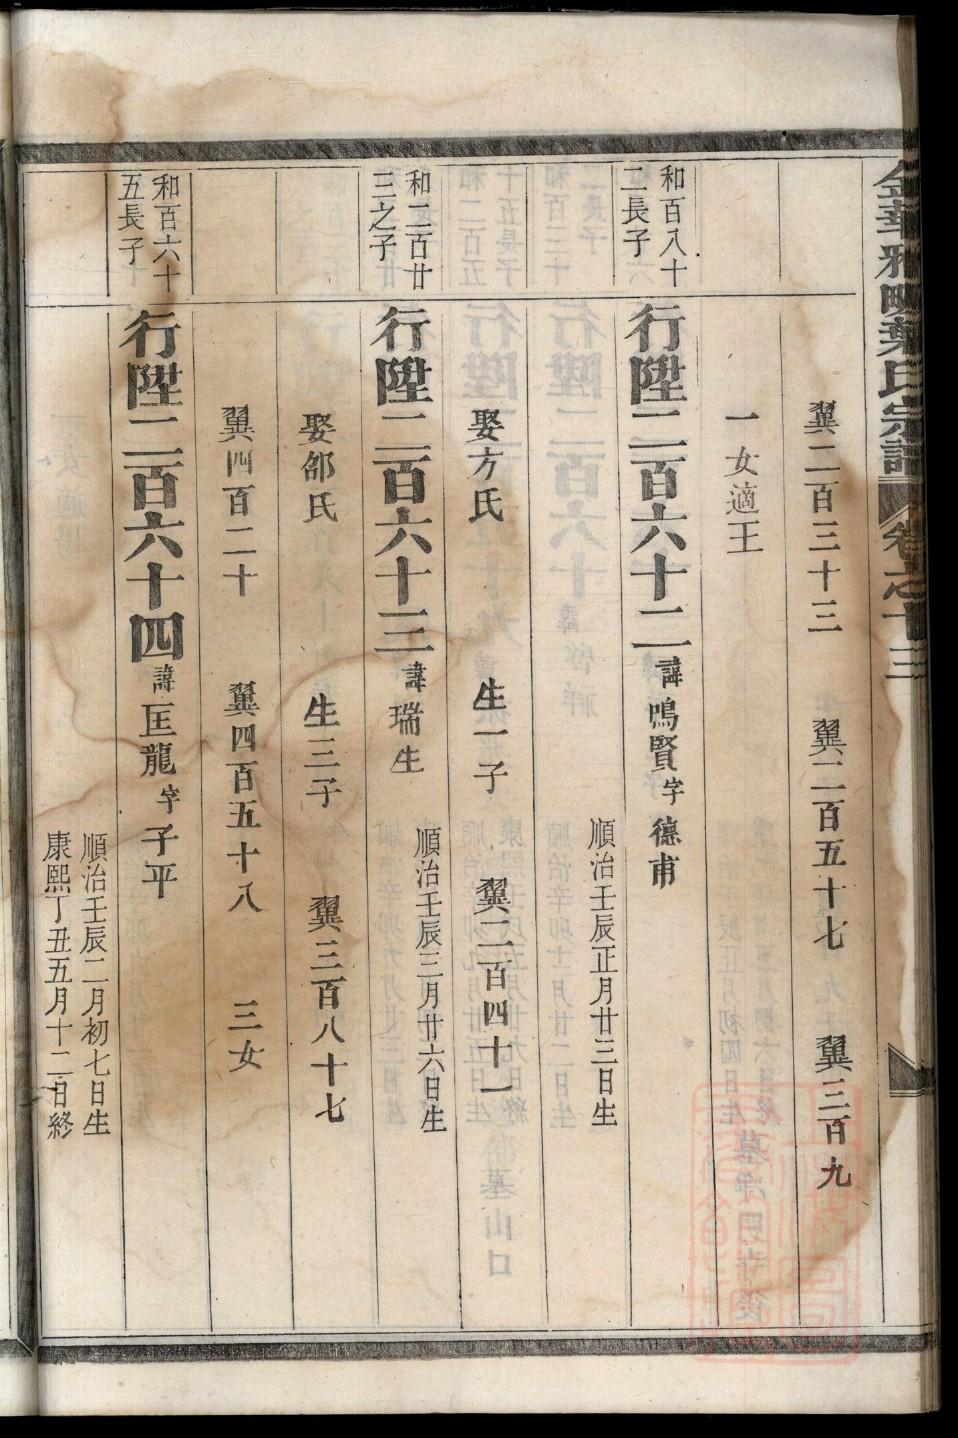 金華雅畈葉氏宗譜 卷之十三
翼二百三十三 翼二百五十七 翼三百九
一女適王
和百八十二長子
行陞二百六十二 諱鳴賢字德甫
順治壬辰正月廿三日生
娶方氏 生一子 翼二百四十一
和二百廿三之子
行陞二百六十三 諱瑞生
順治壬辰三月廿六日生
娶邵氏 生三子 翼三百八十七
翼四百二十 翼四百五十八 三女
和百六十五長子
行陞二百六十四 諱匡龍字子平
順治壬辰二月初七日生
康熙丁丑五月十二日終